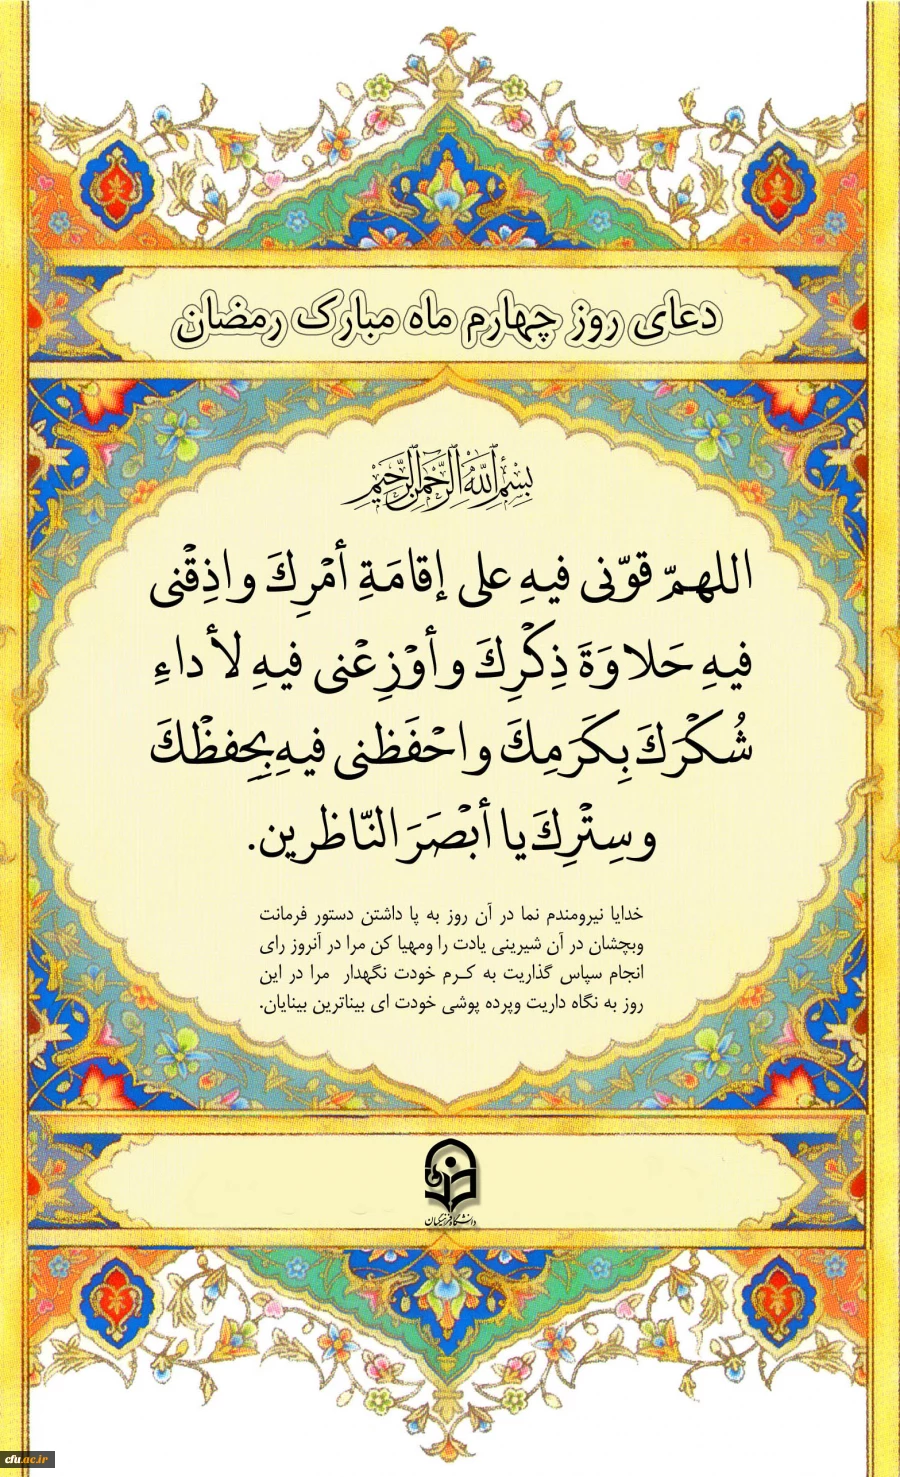 دعای روز چهارم ماه مبارک رمضان
بِسْمِ اللَّهِ الرَّحْمَنِ الرَّحِيمِ
اللهمّ قوّنی فیهِ علی إقامَةِ أمْرِكَ واذِقْنی
فیهِ حَلاوَةَ ذِكْرِكَ وأوْزِعْنی فیهِ لأداءِ
شُكْرَكَ بِكَرَمِكَ واحْفَظنی فیهِ بِحِفظْكَ
وسِتْرِكَ یا أبْصَرَ النّاظرین.
خدایا نیرومندم نما در آن روز به پا داشتن دستور فرمانت
وبچشان در آن شیرینی یادت را ومهیا کن مرا در آنروز رای
انجام سپاس گذاریت به کـرم خودت نگهدار مرا در این
روز به نگاه داریت وپرده پوشی خودت ای بیناترین بینایان.
دانشگاه فرهنگیان
cfu.ac.ir